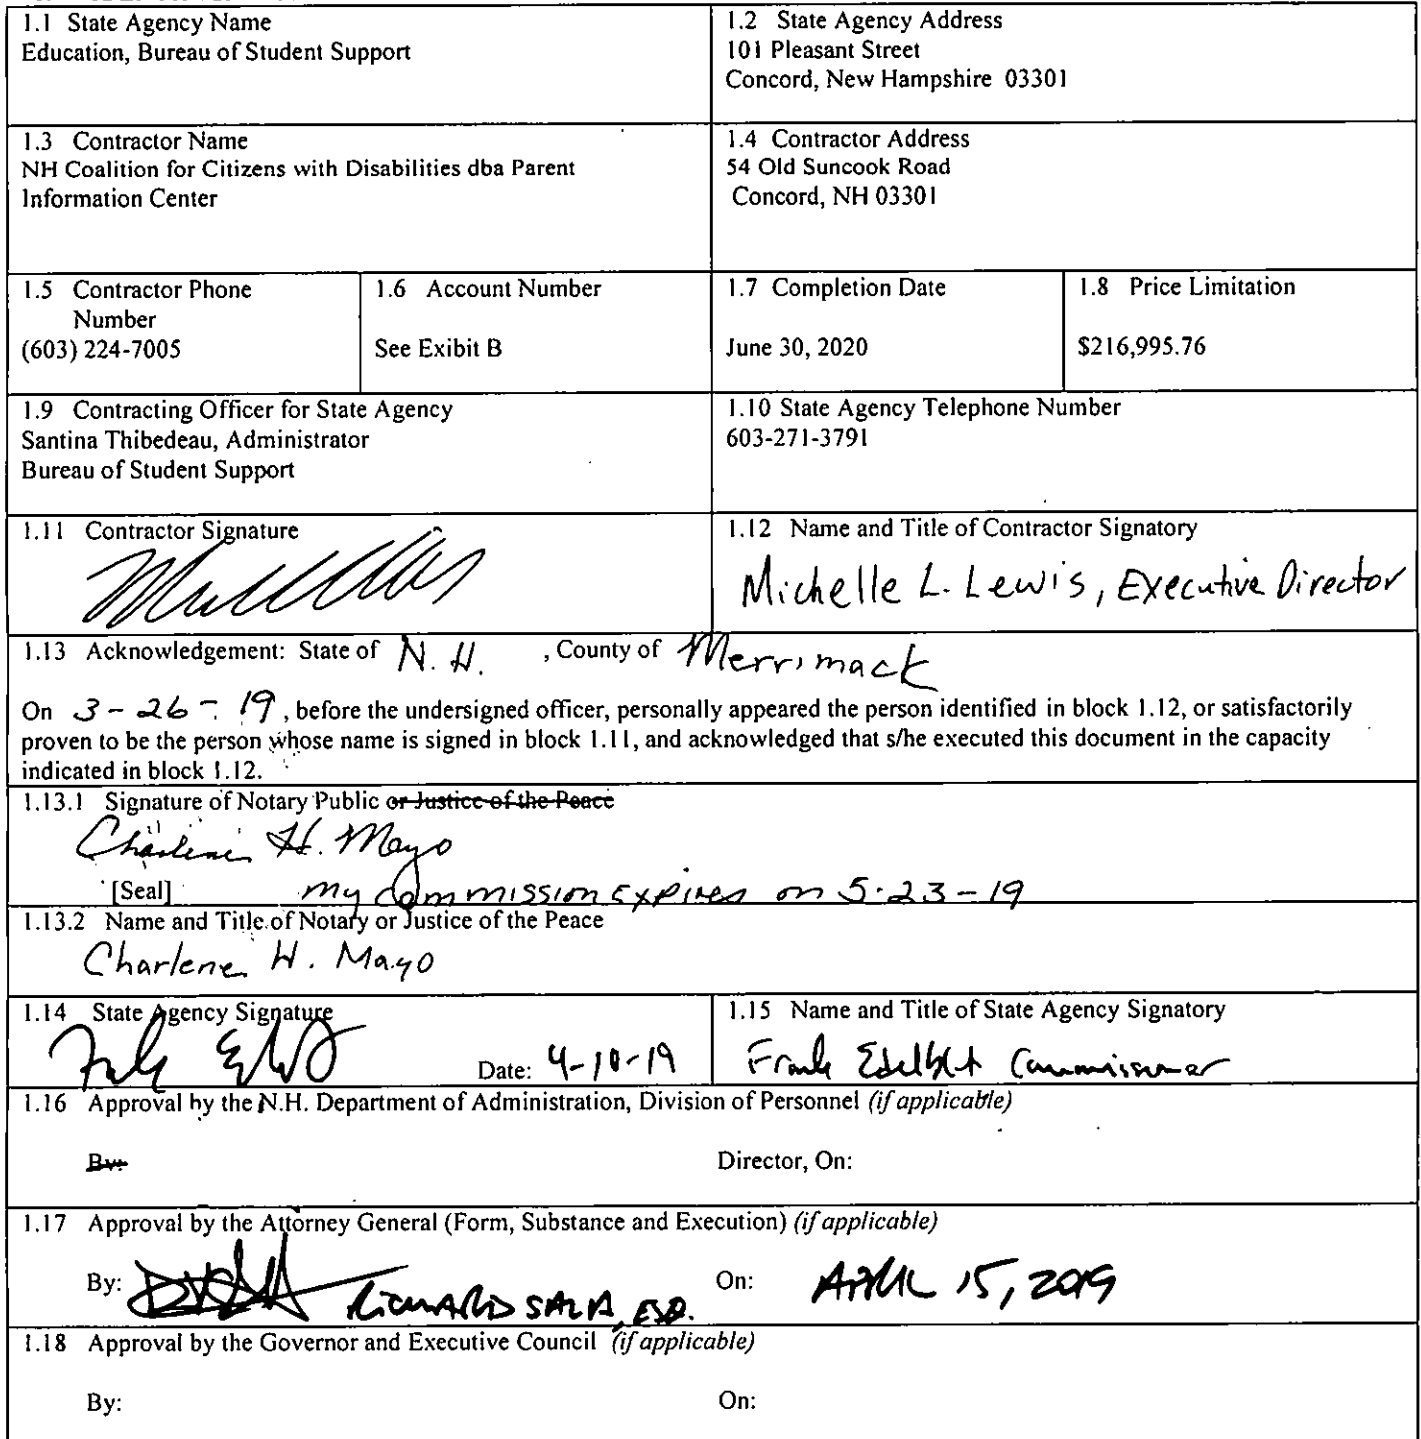 1.1 State Agency Name
Education, Bureau of Student Support
1.2 State Agency Address
101 Pleasant Street
Concord, New Hampshire 03301
1.3 Contractor Name
NH Coalition for Citizens with Disabilities dba Parent
Information Center
1.4 Contractor Address
54 Old Suncook Road
Concord, NH 03301
1.5 Contractor Phone
Number
(603) 224-7005
1.6 Account Number
See Exibit B
1.7 Completion Date
June 30, 2020
1.8 Price Limitation
$216,995.76
1.9 Contracting Officer for State Agency
Santina Thibedeau, Administrator
Bureau of Student Support
1.10 State Agency Telephone Number
603-271-3791
1.11 Contractor Signature
1.12 Name and Title of Contractor Signatory
Michelle L. Lewis, Executive Director
1.13 Acknowledgement: State of N. H. , County of Merrimack
On 3-26-19, before the undersigned officer, personally appeared the person identified in block 1.12, or satisfactorily
proven to be the person whose name is signed in block 1.11, and acknowledged that s/he executed this document in the capacity
indicated in block 1.12.
1.13.1 Signature of Notary Public or Justice of the Peace
Charlene H. Mayo
[Seal] my commission expires on 5-23-19
1.13.2 Name and Title of Notary or Justice of the Peace
Charlene H. Mayo
1.14 State Agency Signature
Date: 4-10-19
1.15 Name and Title of State Agency Signatory
Frank Edelblut Commissioner
1.16 Approval by the N.H. Department of Administration, Division of Personnel (if applicable)
By:
Director, On:
1.17 Approval by the Attorney General (Form, Substance and Execution) (if applicable)
By: RICHARD SALA, ESQ.
On: APRIL 15, 2019
1.18 Approval by the Governor and Executive Council (if applicable)
By:
On: